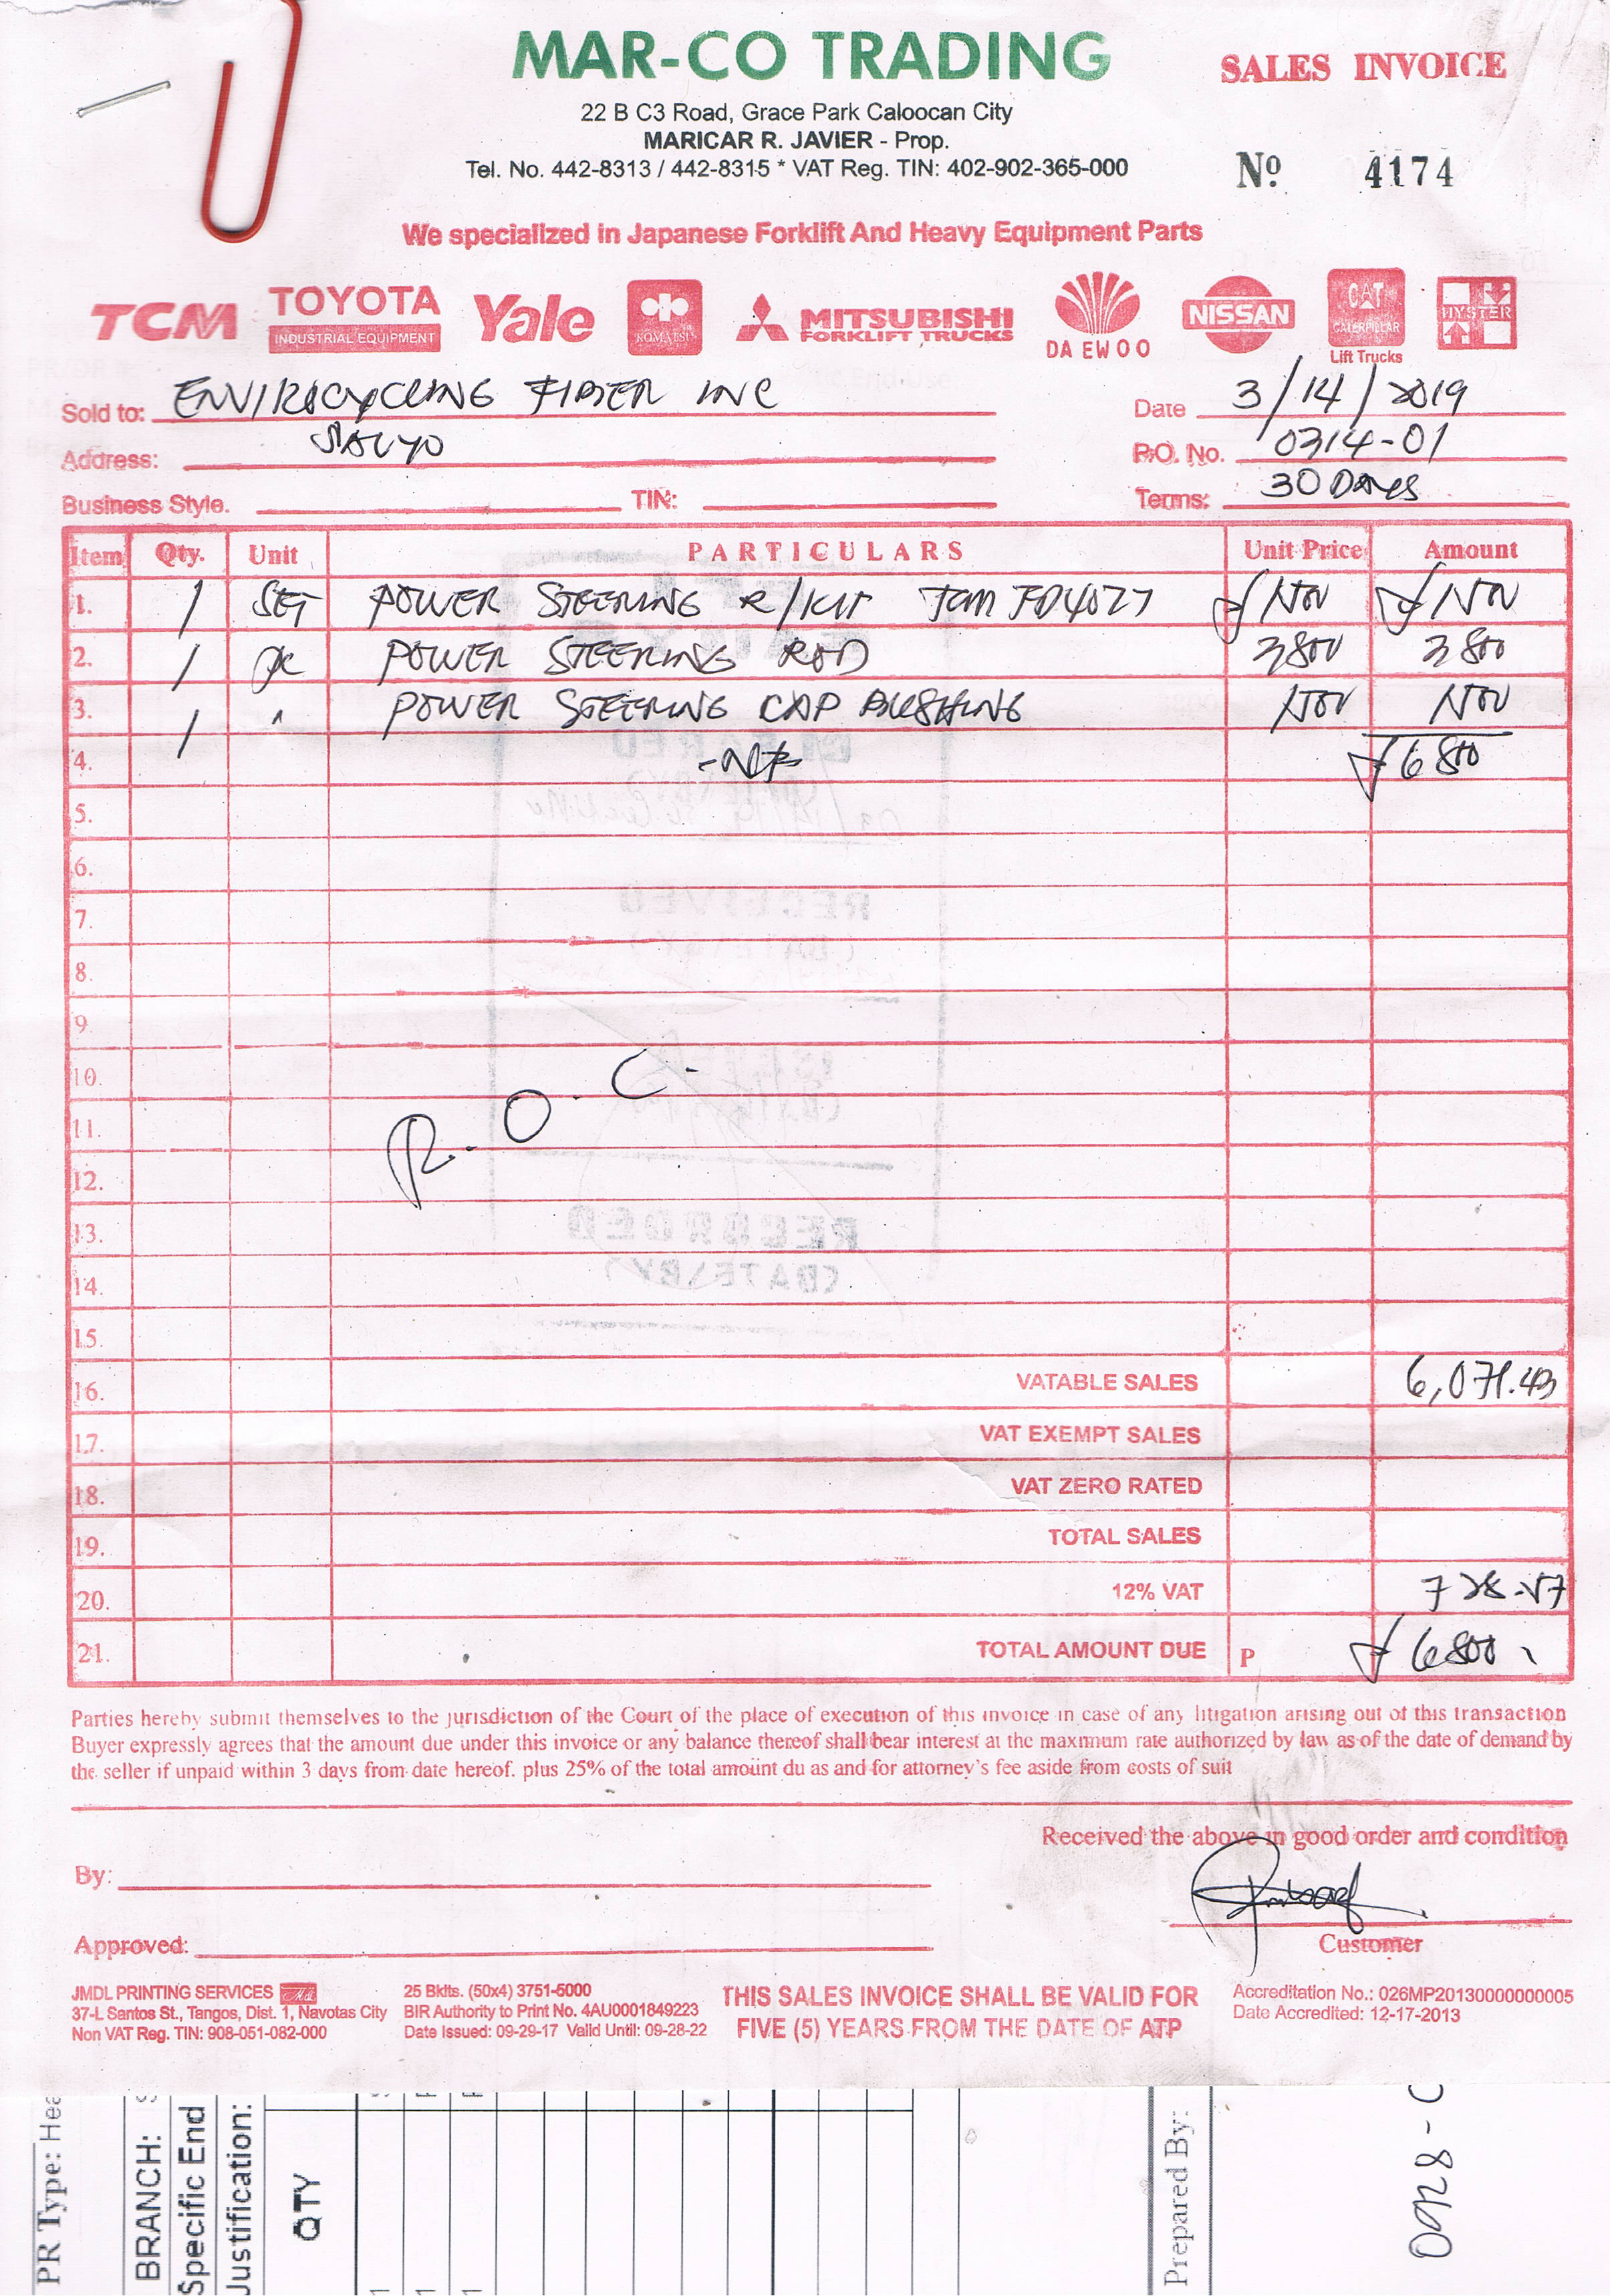 MAR-CO TRADING
SALES INVOICE
22 B C3 Road, Grace Park Caloocan City
MARICAR R. JAVIER - Prop.
Tel. No. 442-8313 / 442-8315 * VAT Reg. TIN: 402-902-365-000
Nº 4174
We specialized in Japanese Forklift And Heavy Equipment Parts
TCM TOYOTA INDUSTRIAL EQUIPMENT Yale KOMATSU MITSUBISHI FORKLIFT TRUCKS DAEWOO NISSAN CAT CATERPILLAR Lift Trucks HYSTER
Sold to: ENVIROCYCLING FIBER INC Date 3/14/2019
Address: P.O. No. 0314-01
Business Style. TIN: Terms: 30 Days
Item Qty. Unit PARTICULARS Unit Price Amount
1. 1 SET POWER STEERING R/KIT TCM FD40Z7
2. 1 pc POWER STEERING ROD 3800 3800
3. 1 " POWER STEERING CAP BUSHING 1500 1500
4. -NF- 6800
5.
6.
7.
8.
9.
10.
R.O.C.
11.
12.
13.
14.
15.
16. VATABLE SALES 6,071.43
17. VAT EXEMPT SALES
18. VAT ZERO RATED
19. TOTAL SALES
20. 12% VAT 728.57
21. TOTAL AMOUNT DUE P 6800
Parties hereby submit themselves to the jurisdiction of the Court of the place of execution of this invoice in case of any litigation arising out of this transaction
Buyer expressly agrees that the amount due under this invoice or any balance thereof shall bear interest at the maximum rate authorized by law as of the date of demand by
the seller if unpaid within 3 days from date hereof. plus 25% of the total amount du as and for attorney's fee aside from costs of suit
Received the above in good order and condition
By:
Approved:
Customer
JMDL PRINTING SERVICES
37-L Santos St., Tangos, Dist. 1, Navotas City
Non VAT Reg. TIN: 908-051-082-000
25 Bklts. (50x4) 3751-5000
BIR Authority to Print No. 4AU0001849223
Date Issued: 09-29-17 Valid Until: 09-28-22
THIS SALES INVOICE SHALL BE VALID FOR
FIVE (5) YEARS FROM THE DATE OF ATP
Accreditation No.: 026MP20130000000005
Date Accredited: 12-17-2013
PR Type: Hea
BRANCH:
Specific End
Justification:
QTY
Prepared By: